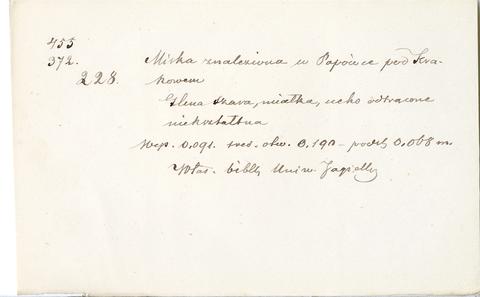 455
372.
228.
Miska znaleziona w Popówce pod Kra-
kowem
Glina szara, miałka, ucho odtrącone
niekształtna
Wys. 0.091. sred. otw. 0,190 – podst 0,068 m.
Włas. bibl. Uniw. Jagiell.